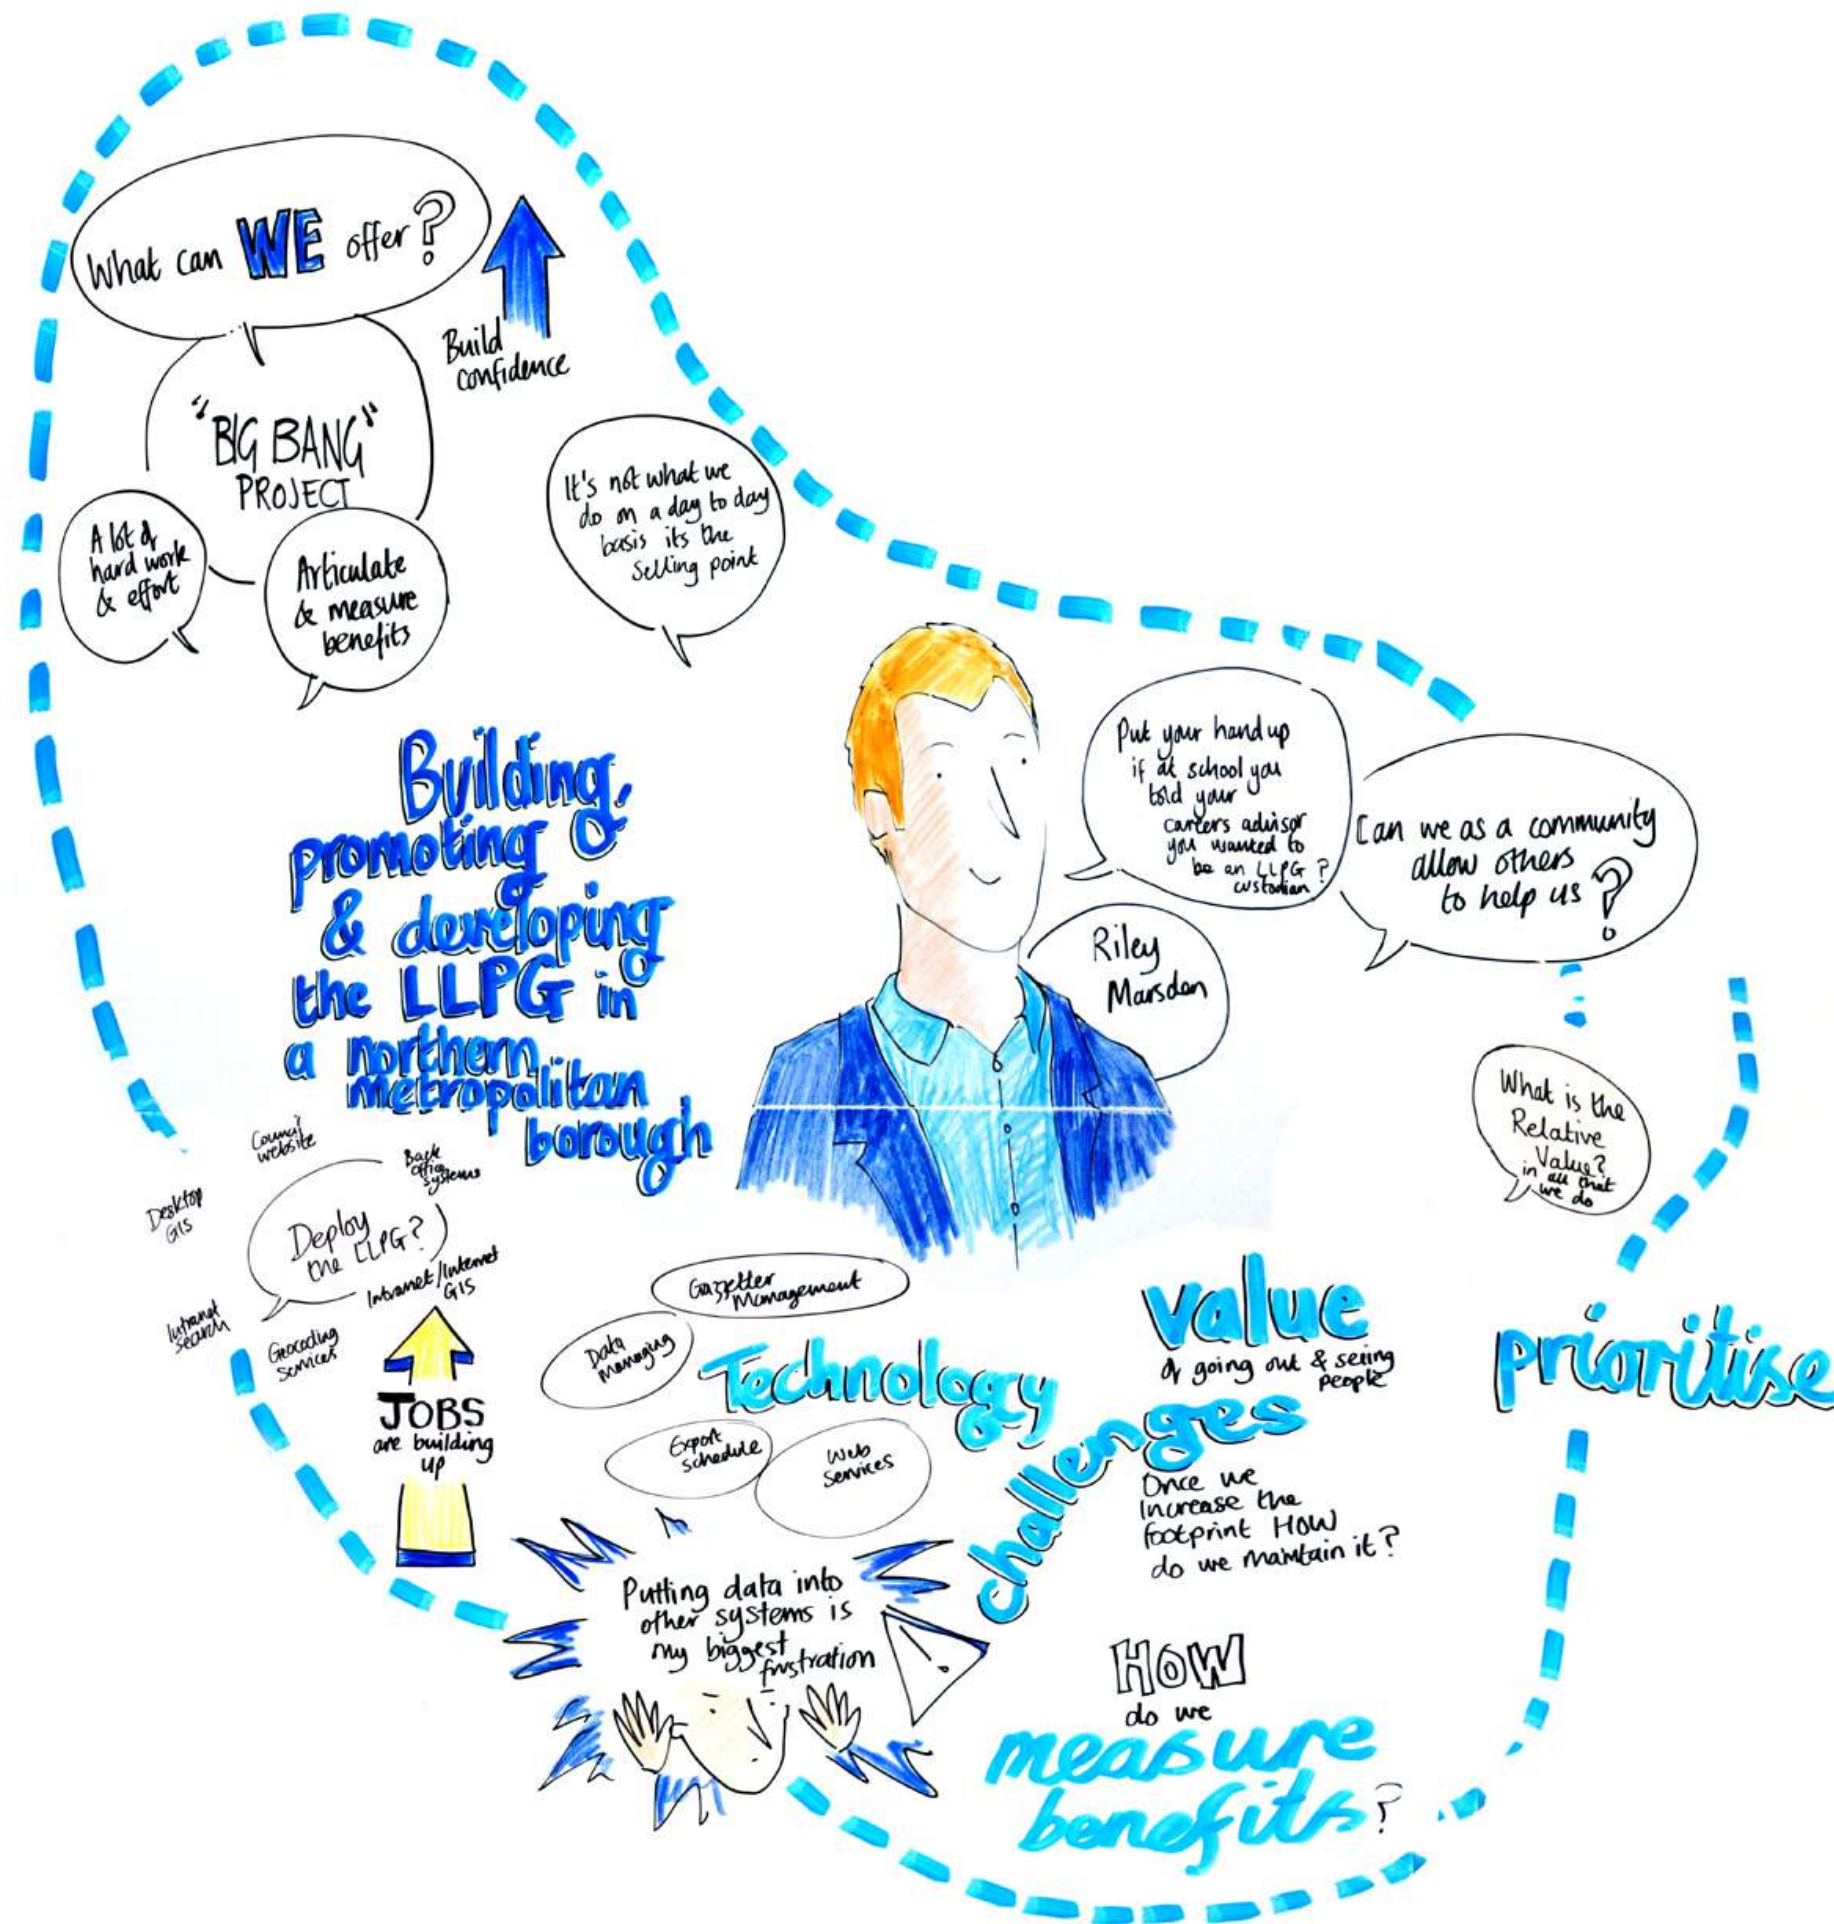 What can WE offer?
Build
confidence
"BIG BANG"
PROJECT
A lot of
hard work
& effort
Articulate
& measure
benefits
It's not what we
do on a day to day
basis its the
selling point
Building,
promoting
& developing
the LLPG in
a northern
metropolitan
borough
Put your hand up
if at school you
told your
careers advisor
you wanted to
be an LLPG ?
custodian
Can we as a community
allow others
to help us ?
Riley
Marsden
What is the
Relative
Value?
in all that
we do
Council
website
Back
office
systems
Desktop
GIS
Deploy
the LLPG?
Intranet/Internet
GIS
Intranet
search
Geocoding
services
JOBS
are building
up
Gazetter
Management
Data
Managing
Technology
Export
schedule
Web
services
Value
of going out & seeing
people
challenges
Once we
increase the
footprint HOW
do we maintain it?
prioritise
Putting data into
other systems is
my biggest
frustration
!
HOW
do we
measure
benefits?